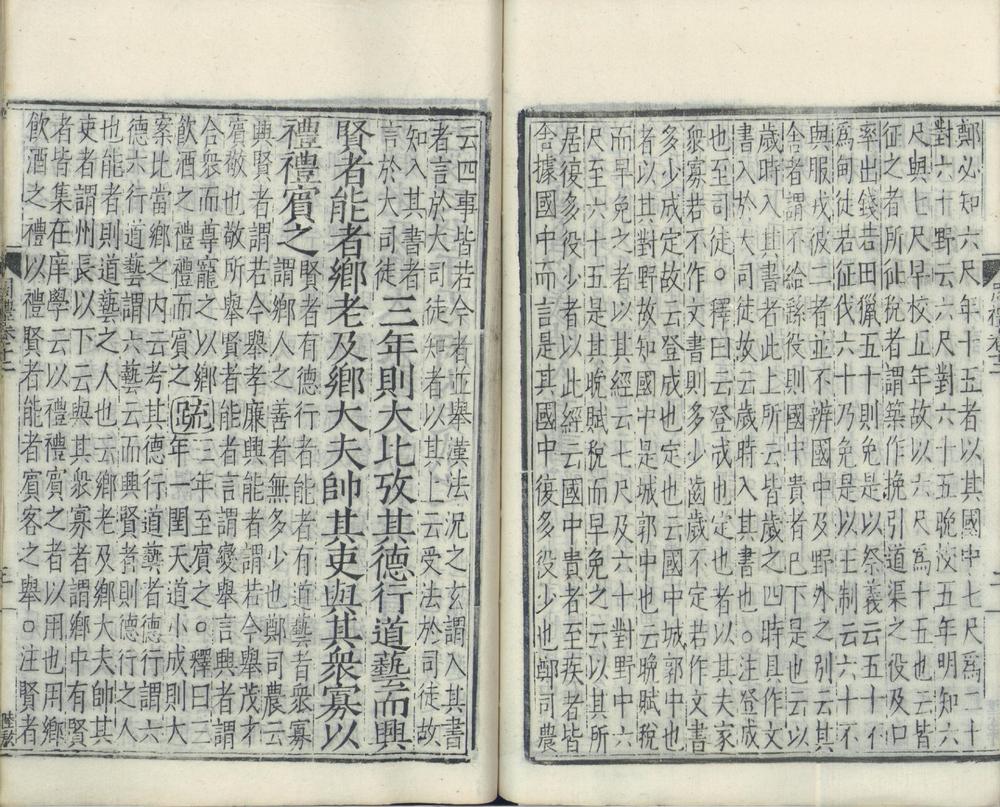 鄭必知六尺年十五者以其國中七尺爲二十
對六十野云六尺對六十五晚校五年明知六
尺與七尺早校五年故以六尺爲十五也云皆
征之者所征稅者謂築作挽引道渠之役及口
率出錢若田獵五十則免是以祭義云五十不
爲甸徒若征伐六十乃免是以王制云六十不
與服戎彼二者並不辨國中及野外之別云其
舍者謂不給繇役則國中貴者已下是也云以
歲時入其書者此上所云皆歲之四時具作文
書入於大司徒故云歲時入其書也○注登成
也至司徒○釋曰云登成也定也者以其夫家
衆寡若不作文書則多少齒歲不定若作文書
多少成定故云登成也定也云國中城郭中也
者以其對野故知國中是城郭中也云晚賦稅
而早免之者以其經云七尺及六十對野中六
尺至六十五是其晚賦稅而早免之云以其所
居復多役少者以此經云國中貴者至疾者皆
舍據國中而言是其國中復多役少也鄭司農
云四事皆若今者並舉漢法況之玄謂入其書
者言於大司徒知者以其上云受法於司徒故
知入其書者
言於大司徒
三年則大比攷其德行道藝而興
賢者能者鄉老及鄉大夫帥其吏與其衆寡以
禮禮賓之
賢者有德行者能者有道藝者衆寡
謂鄉人之善者無多少也鄭司農云
興賢者謂若今舉孝廉興能者謂若今舉茂才
賓敬也敬所舉賢者能者玄謂變舉言興者謂
合衆而尊寵之以鄉
飲酒之禮禮而賓之
疏
三年至賓之○釋曰三
年一閏天道小成則大
案比當鄉之內云考其德行道藝者德行謂六
德六行道藝謂六藝云而興賢者則德行之人
也能者則道藝之人也云鄉老及鄉大夫帥其
吏者謂州長以下云與其衆寡者謂鄉中有賢
者皆集在庠學云以禮禮賓之者以用也用鄉
飲酒之禮以禮賢者能者賓客之舉○注賢者